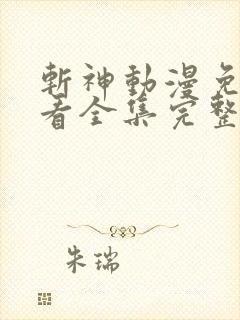 斬神動漫免
看全集完整
朱瑞